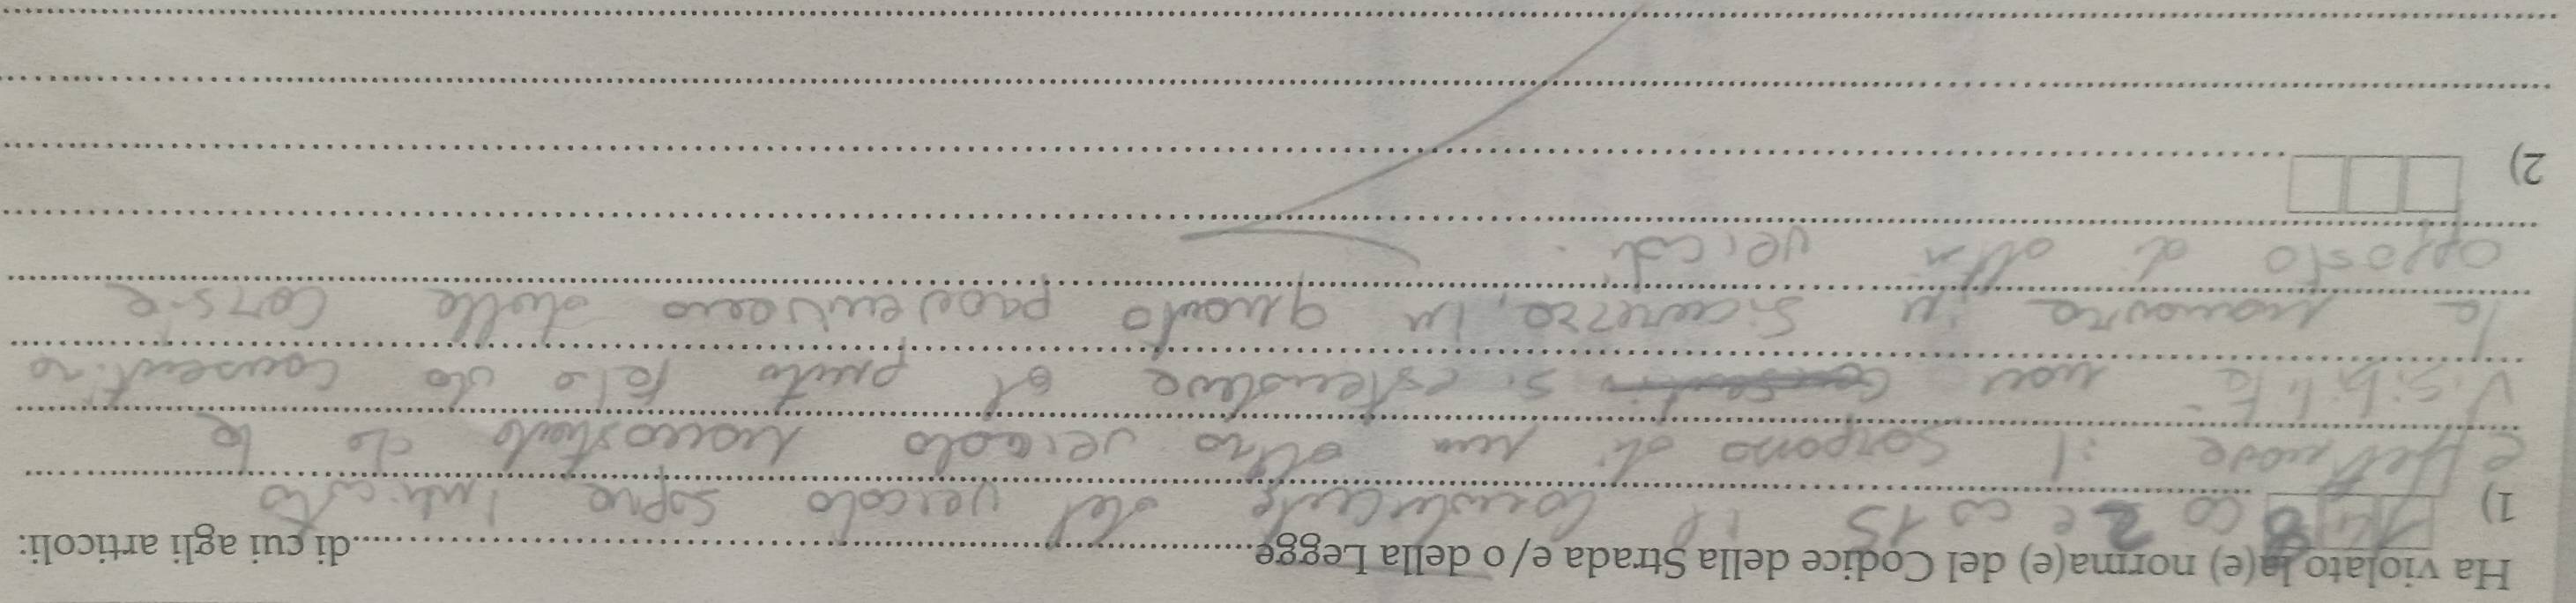 Ha violato la(e) norma(e) del Codice della Strada e/o della Legge..................di cui agli articoli:
1) 148 co 2 e co 15 il conducente del veicolo sopra indicato
effettuava il sorpasso di un altro veicolo nonostante che la
visibilità non si estendeva al punto tale da consentire
la manovra in sicurezza, in quanto provenivano dalla corsia
opposta di altri veicoli.
2)